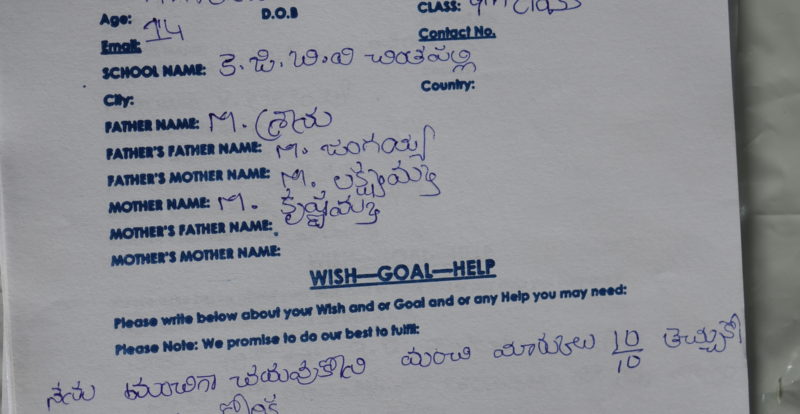 Age: 14 D.O.B CLASS: 9th class
Email: Contact No.
SCHOOL NAME: కె.జి.బి.వి చింతపల్లి
City: Country:
FATHER NAME: M. శ్రీను
FATHER'S FATHER NAME: M. జంగయ్య
FATHER'S MOTHER NAME: M. లక్ష్మమ్మ
MOTHER NAME: M. కృష్ణమ్మ
MOTHER'S FATHER NAME:
MOTHER'S MOTHER NAME:
WISH—GOAL—HELP
Please write below about your Wish and or Goal and or any Help you may need:
Please Note: We promise to do our best to fulfil:
నేను మంచిగా చదువుకొని మంచి మార్కులు 10/10 తెచ్చుకో